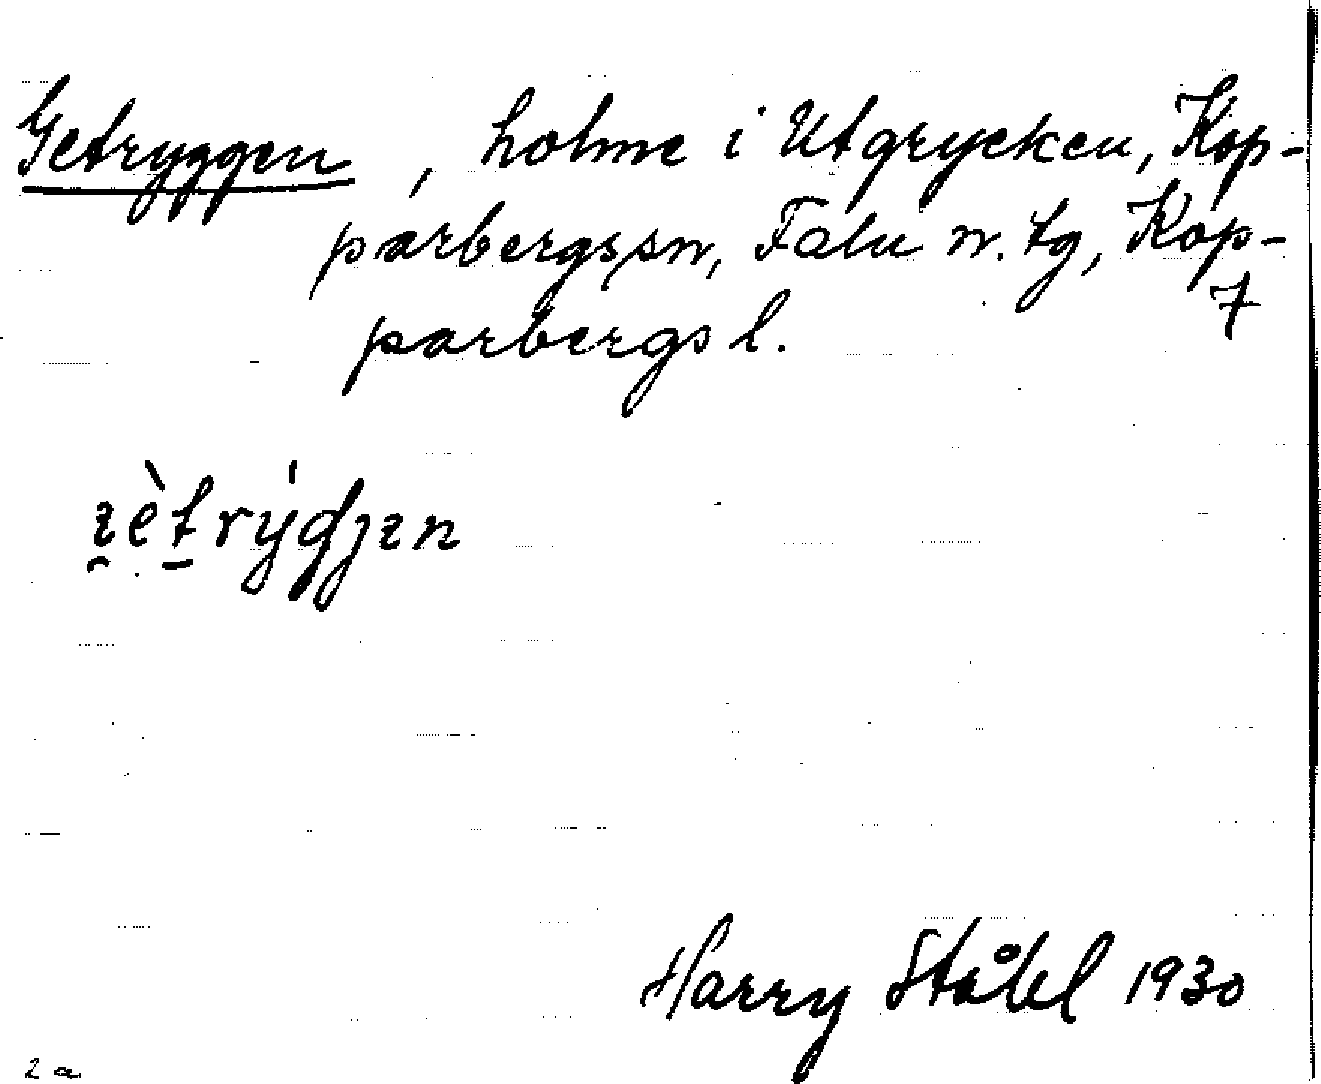 Getryggen, holme i Utgrycken, Kop-
parbergs sn, Falu n. tg, Kop-
parbergs l.
7
Harry Ståhl 1930
2 a